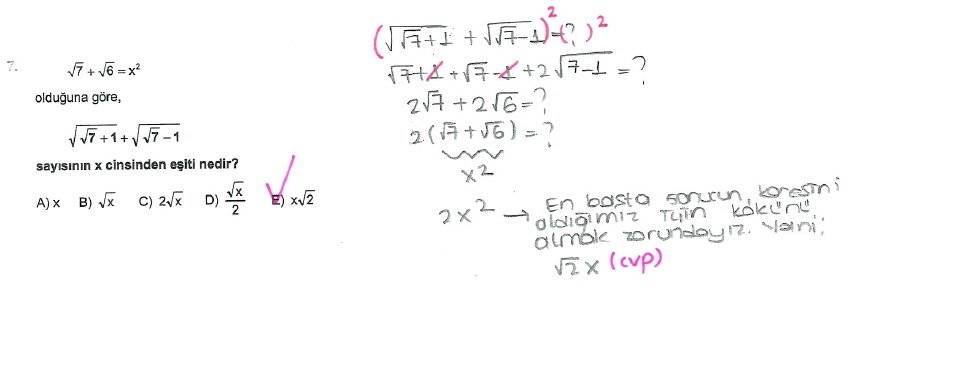 7.
√7 + √6 = x²
olduğuna göre,
√(√7 + 1) + √(√7 − 1)
sayısının x cinsinden eşiti nedir?
A) x B) √x C) 2√x D) √x/2 E) x√2
(√(√7+1) + √(√7-1))² = (?)²
√7+1 + √7-1 + 2√(7-1) = ?
2√7 + 2√6 = ?
2(√7 + √6) = ?
x²
2x² → En başta sonucun karesini
aldığımız için kökünü
almak zorundayız. Yani;
√2 x (cvp)